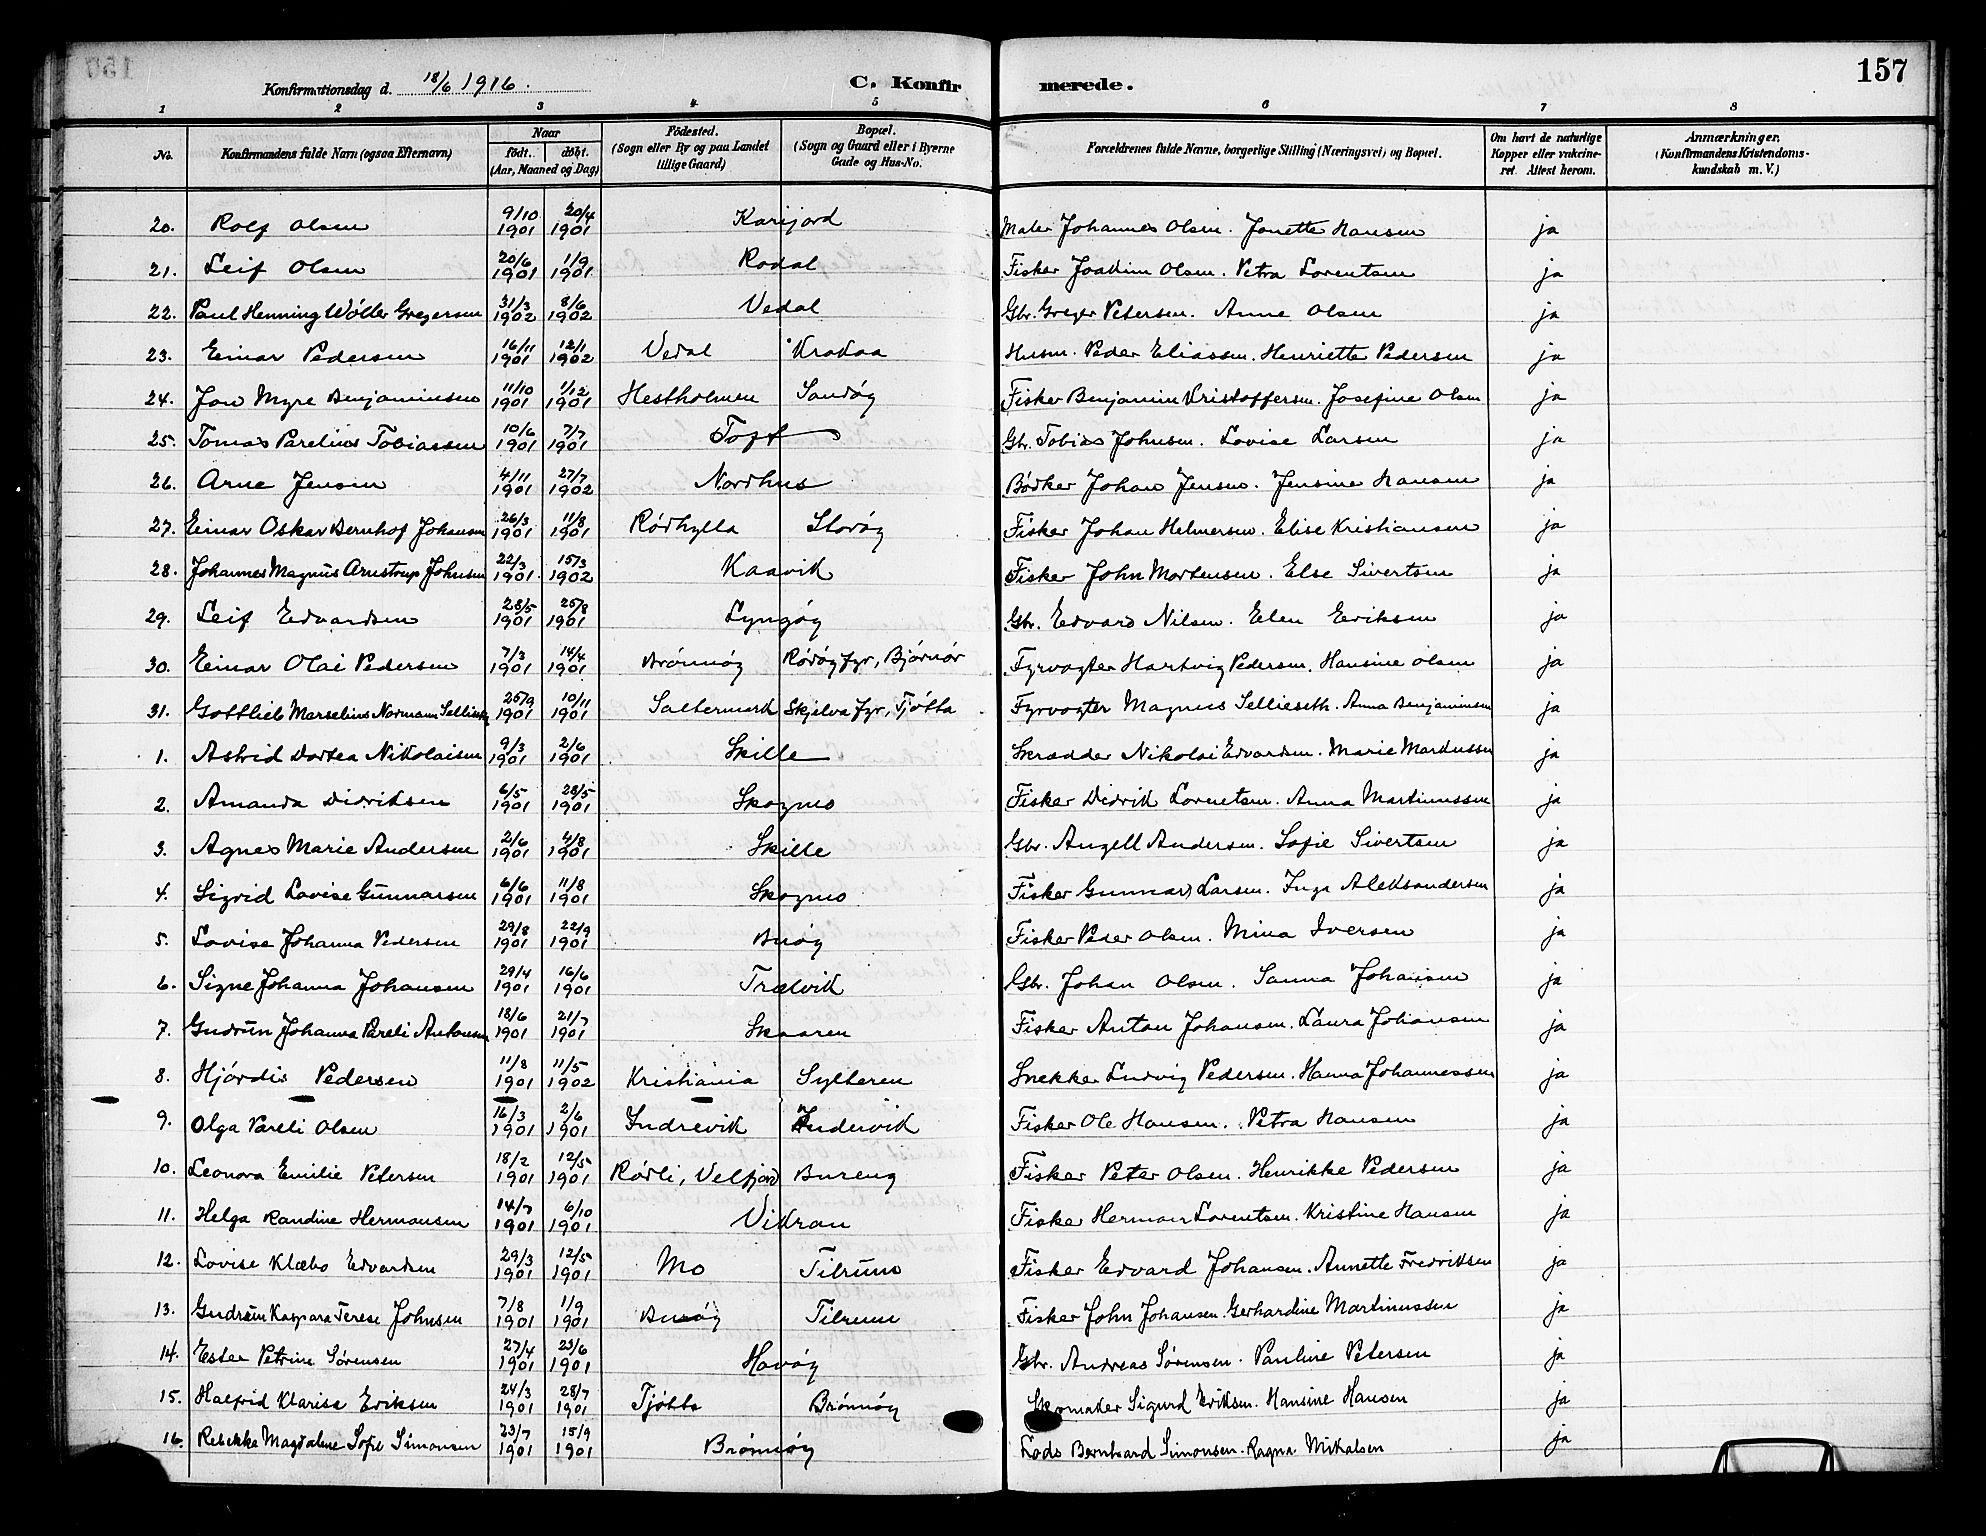 157
Konfirmationsdag d. 18/6 1916. C. Konfirmerede.
1 2 3 4 5 6 7 8
No. Konfirmandens fulde Navn (ogsaa Efternavn) Naar født. døbt. (Aar, Maaned og Dag) Fødested. (Sogn eller By og paa Landet tillige Gaard) Bopæl. (Sogn og Gaard eller i Byerne Gade og Hus-No. Forældrenes fulde Navne, borgerlige Stilling (Næringsvei) og Bopæl. Om havt de naturlige Kopper eller vakcineret. Attest herom. Anmærkninger. (Konfirmandens Kristendomskundskab m. V.)
20. Rolf Olsen 9/10 1901 20/4 1901 Karijord Maler Johannes Olsen. Jonette Hansen ja
21. Leif Olsen 20/6 1901 1/9 1901 Rodal Fisker Joakim Olsen. Petra Lorentsen ja
22. Paul Henning Wøller Gregersen 31/3 1902 8/6 1902 Vedal Gbr. Greger Petersen. Anne Olsen ja
23. Einar Pedersen 16/11 1901 12/1 1902 Vedal Krokaa Husm. Peder Eliassen. Henriette Pedersen ja
24. Jon Myre Benjaminsen 11/10 1901 1/12 1901 Hestholmen Sandøy Fisker Benjamin Kristoffersen. Josefine Olsen ja
25. Tomas Parelius Tobiassen 10/6 1901 7/7 1901 Toft Gbr. Tobias Johnsen. Lovise Larsen ja
26. Arne Jensen 4/11 1901 27/7 1902 Nordhus Bødker Johan Jensen. Jensine Hansen ja
27. Einar Oskar Bernhof Johansen 26/3 1901 11/8 1901 Rødhylla Storøy Fisker Johan Helmersen. Elise Kristiansen ja
28. Johannes Magnus Arnstrup Johnsen 22/3 1901. 15/3 1902 Kaavik Fisker John Mortensen. Else Sivertsen ja
29. Leif Edvardsen 28/5 1901 25/8 1901 Lyngøy Gbr. Edvard Nilsen. Elen Eriksen ja
30. Einar Olai Pedersen 7/3 1901 14/4 1901 Brønnøy Rødøy fyr, Bjørnør Fyrvogter Hartvig Pedersen. Hansine Olsen ja
31. Gottlieb Marselius Normann 25/9 1901 10/11 1901 Skjelva fyr, Tjøtta Fyrvogter Magnus Sellieseth. Anna Benjaminsen ja
1. Astrid Dortea Nikolaisen 9/3 1901 2/6 1901 Skille Skrædder Nikolai Edvardsen. Marie Markussen ja
2. Amanda Didriksen 6/5 1901 28/5 1901 Skogmo Fisker Didrik Lorentsen. Anna Martinussen ja
3. Agnes Marie Andersen 2/6 1901 4/8 1901 Skille Gbr. Angell Andersen. Sofie Sivertsen ja
4. Sigrid Lovise Gunnarsen 6/6 1901 11/8 1901 Skogmo Fisker Gunnar Larsen. Inga Aleksandersen ja
5. Lovise Johanna Pedersen 29/8 1901 22/9 1901 Buøy Fisker Peder Olsen. Mina Iversen ja
6. Signe Johanna Johansen 29/4 1901 16/6 1901 Trælvik Gbr. Johan Olsen. Sanna Johansen ja
7. Gudrun Johanna Pareli Antonsen 18/6 1901 21/7 1901 Skaaren Fisker Anton Johansen. Laura Johansen ja
8. Hjørdis Pedersen 11/8 1901 11/5 1902 Kristiania Sylteren Snekker Ludvig Pedersen. Hanna Johannessen ja
9. Olga Pareli Olsen 16/3 1901 2/6 1901 Indrevik Indervik Fisker Ole Hansen. Petra Hansen ja
10. Leonora Emilie Petersen 18/2 1901 12/5 1901 Rødli, Velfjord Bureng Fisker Peter Olsen. Henrikke Pedersen ja
11. Helga Randine Hermansen 14/7 1901 6/10 1901 Vikran Fisker Herman Lorentsen. Kristine Hansen ja
12. Lovise Klæbo Edvardsen 29/3 1901 12/5 1901 Mo Tilrum Fisker Edvard Johansen. Annette Fredriksen ja
13. Gudrun Kaspara Terese Johnsen 7/8 1901 1/9 1901 Buøy Tilrum Fisker John Johansen. Gerhardine Martinussen ja
14. Ester Petrine Sørensen 27/4 1901 23/6 1901 Havøy Gbr. Andreas Sørensen. Pauline Petersen ja
15. Halfrid Klarisa Eriksen 24/3 1901 28/7 1901 Tjøtta Brønnøy Skomaker Sigurd Eriksen. Hansine Hansen ja
16. Rebekka Magdalene Sofie Simonsen 23/7 1901 15/9 1901 Brønnøy Lods Bernhard Simonsen. Ragna Mikalsen ja